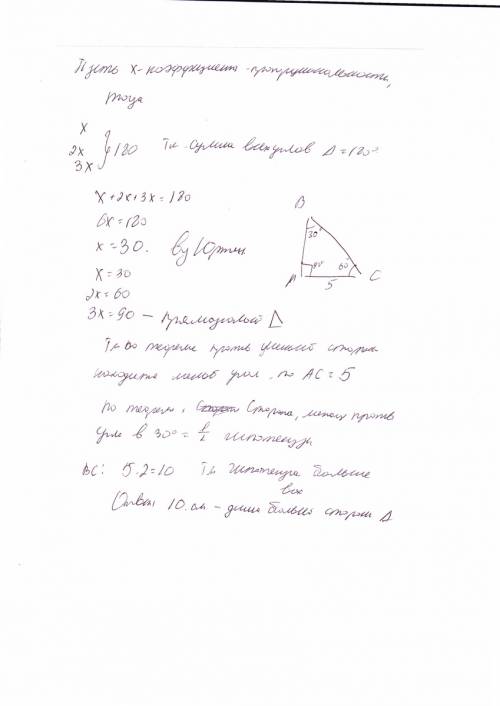 Пусть x - коэффициент пропорциональности,
тогда
x
2x } 180 Тк сумма всех углов Δ = 180°
3x
x + 2x + 3x = 180
6x = 180
x = 30.
x = 30
2x = 60
3x = 90 - прямоугольный Δ
B
30°
90°
60°
A
C
5
Тк по теореме против меньшей стороны
находится меньш угол, то AC = 5
по теореме, сторона, лежащ против
угла в 30° = 1/2 гипотенузы
BC: 5·2=10 Тк гипотенуза больше
всех
Ответ: 10 см - длина большей стороны Δ